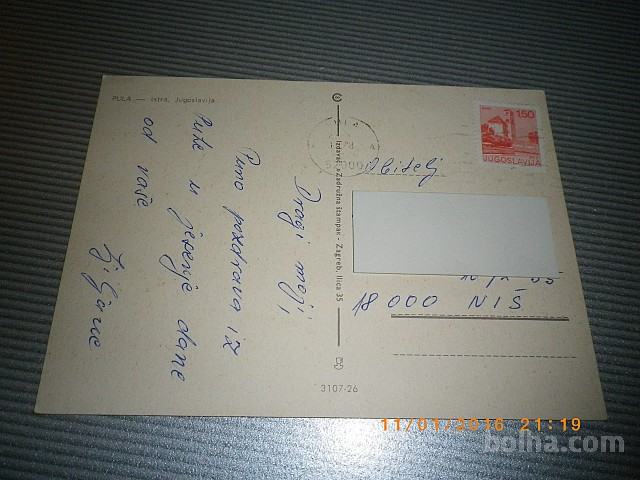 PULA — Istra, Jugoslavija
Dragi moji,
Puno pozdrava iz
Pule u jesenje dane
od vaše
Ljiljane
Izdavač: »Zadružna štampa« - Zagreb, Ilica 35
3107-26
52000
1,50
JUGOSLAVIJA
Obitelj
18 000 NIŠ
11/01/2016 21:19
bolha.com